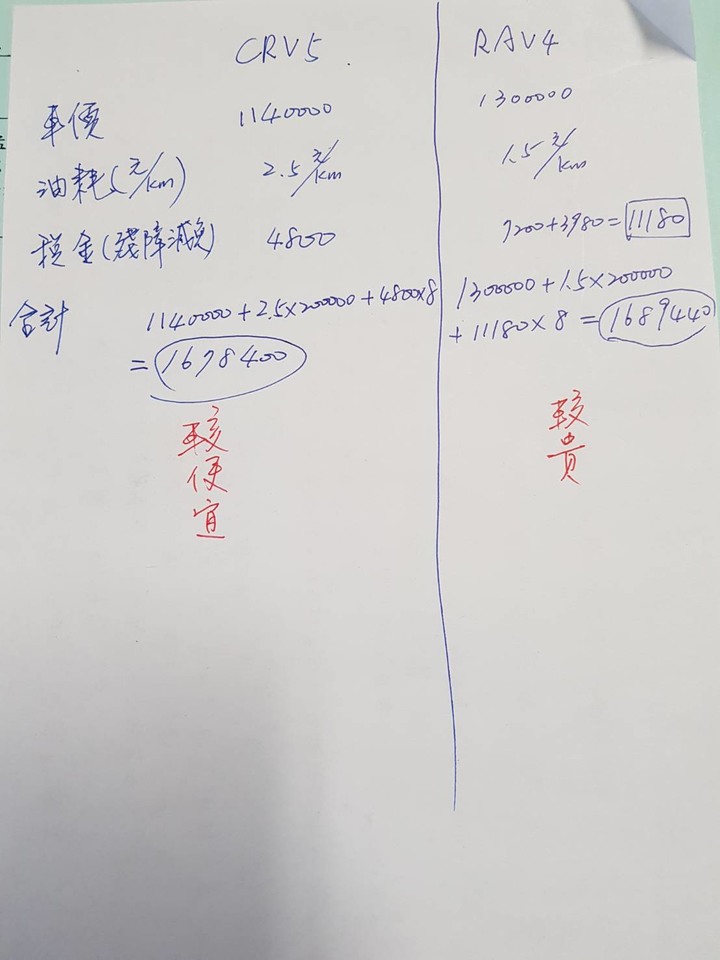 CRV5 RAV4
車價 1140000 1300000
油耗(元/km) 2.5元/km 1.5元/km
稅金(殘障減免) 4800 7200+3980=11180
合計 1140000+2.5×200000+4800×8 1300000+1.5×200000
=1678400 +11180×8=1689440
較便宜 較貴